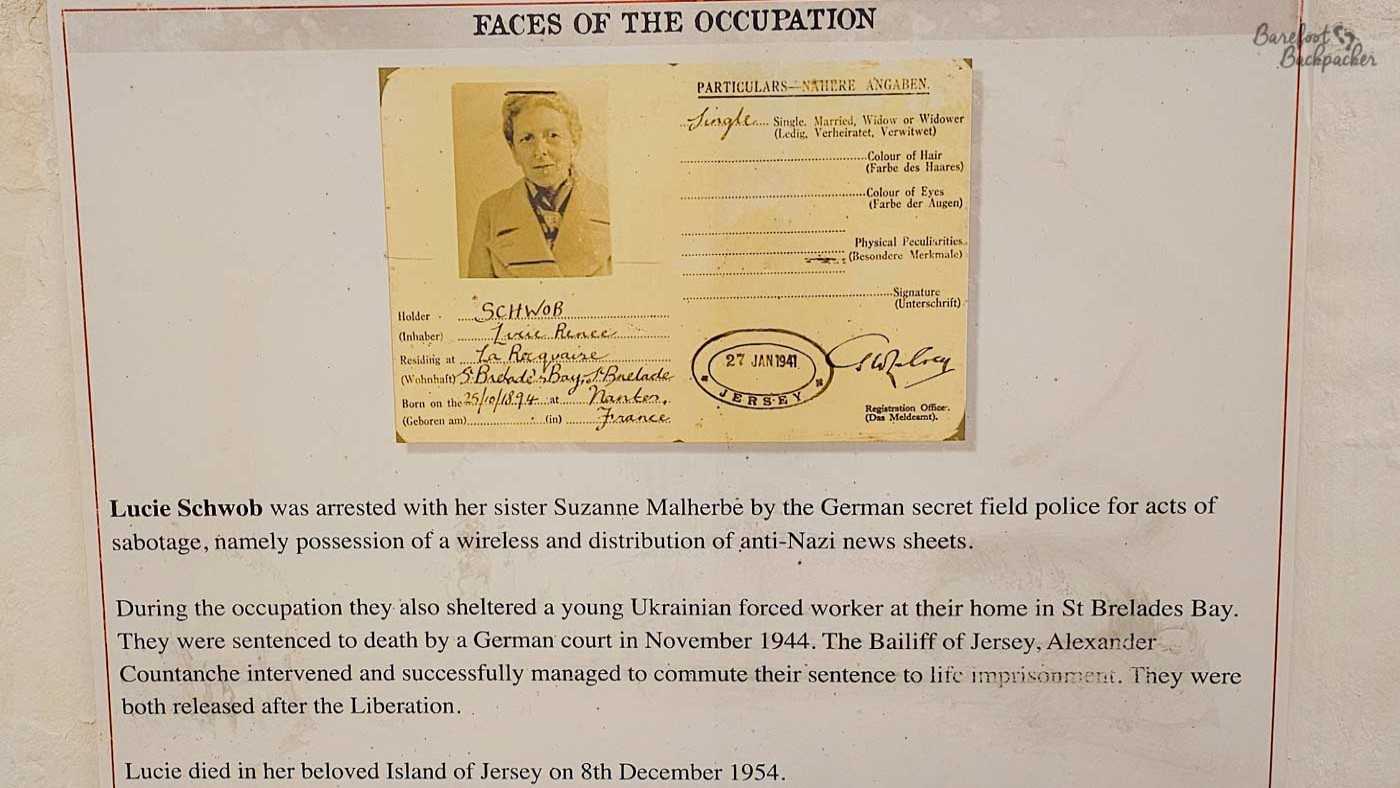 FACES OF THE OCCUPATION
Barefoot
Backpacker
PARTICULARS—NÄHERE ANGABEN.
Single Single, Married, Widow or Widower
(Ledig, Verheiratet, Verwitwet)
Colour of Hair
(Farbe des Haares)
Colour of Eyes
(Farbe der Augen)
Physical Peculiarities
(Besondere Merkmale)
Signature
(Unterschrift)
Holder SCHWOB
(Inhaber) Lucie Renee
Residing at La Rocquaise
(Wohnhaft) St Brelade's Bay, St Brelade
Born on the 25/10/1894 at Nantes,
(Geboren am) (in) France
27 JAN 1941
JERSEY
Registration Office.
(Das Meldeamt).
Lucie Schwob was arrested with her sister Suzanne Malherbe by the German secret field police for acts of
sabotage, namely possession of a wireless and distribution of anti-Nazi news sheets.
During the occupation they also sheltered a young Ukrainian forced worker at their home in St Brelades Bay.
They were sentenced to death by a German court in November 1944. The Bailiff of Jersey, Alexander
Countanche intervened and successfully managed to commute their sentence to life imprisonment. They were
both released after the Liberation.
Lucie died in her beloved Island of Jersey on 8th December 1954.